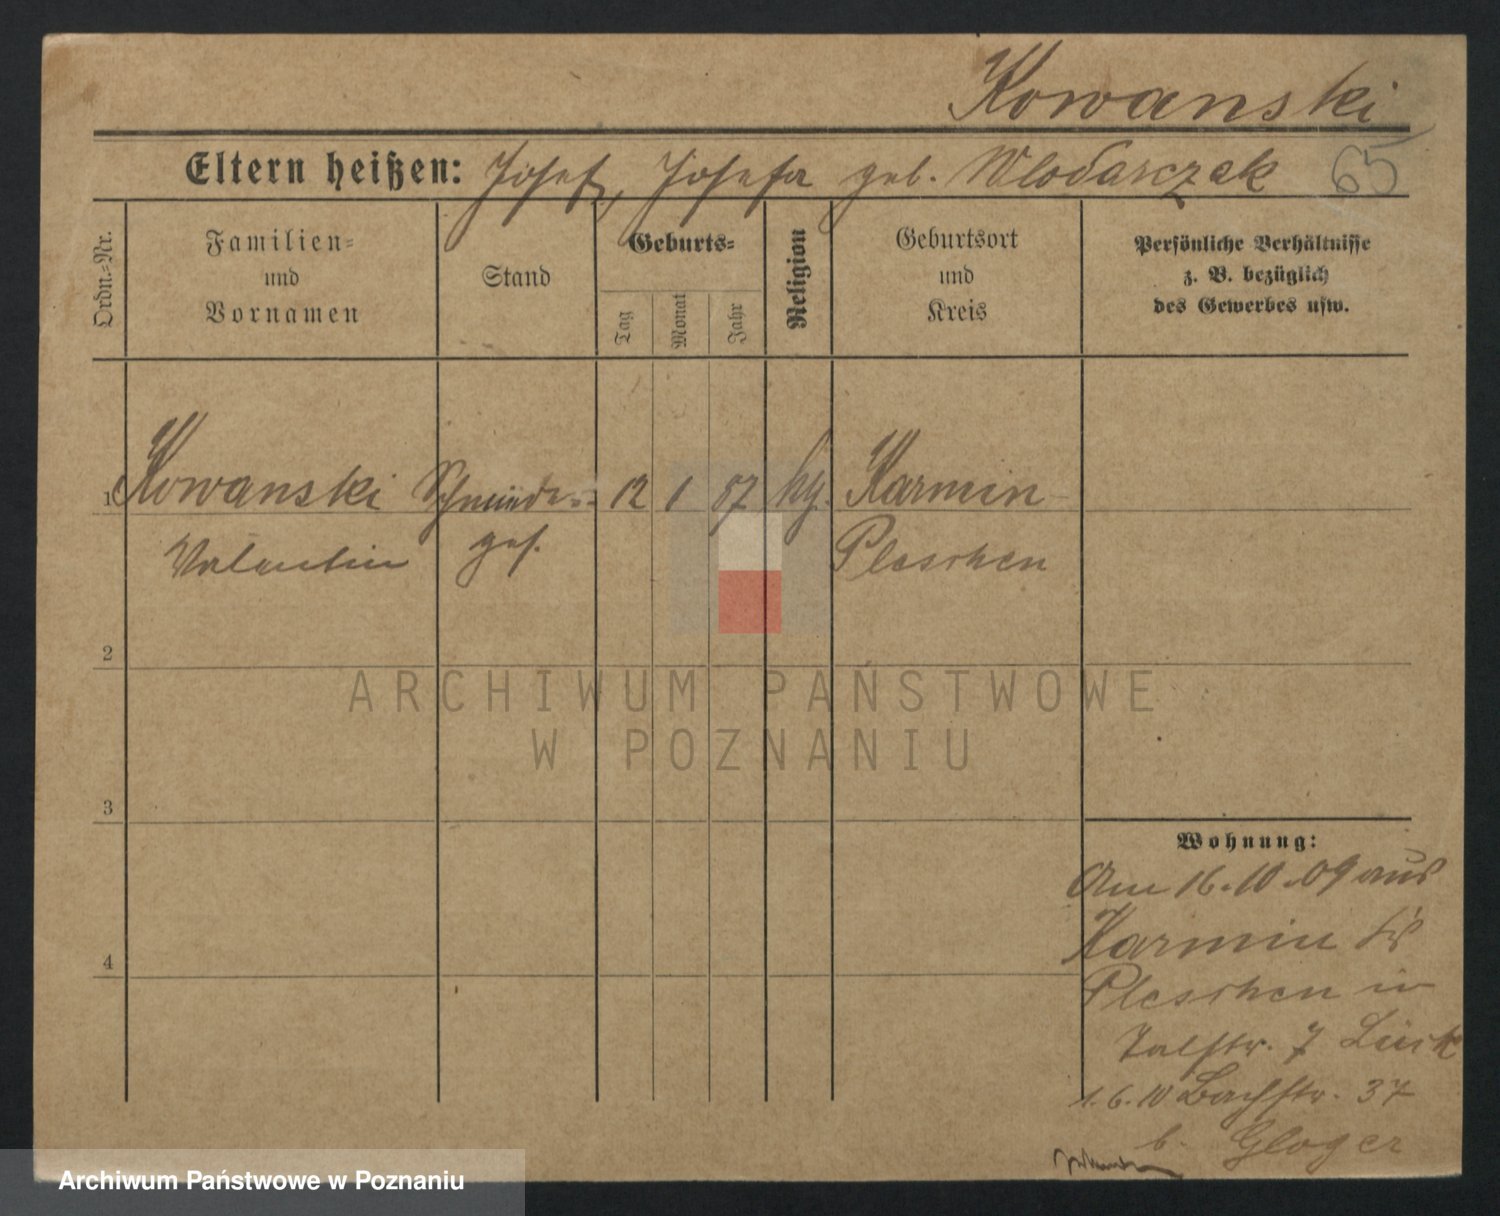 Kowanski
Eltern heißen: Josef, Josefa geb. Wlodarczak
65
Ordn.-Nr.
Familien-
und
Vornamen
Stand
Geburts-
Tag
Monat
Jahr
Religion
Geburtsort
und
Kreis
Persönliche Verhältnisse
z. B. bezüglich
des Gewerbes usw.
1 Kowanski Schmiede- 12 1 87 Karmin
Valentin ges. Pleschen
2
ARCHIWUM PAŃSTWOWE
W POZNANIU
3
Wohnung:
Am 16.10.09 aus
4
Karmin
Pleschen in
Talstr. 7 Lück
1.6.10 Bachstr. 37
b. Gloger
Archiwum Państwowe w Poznaniu